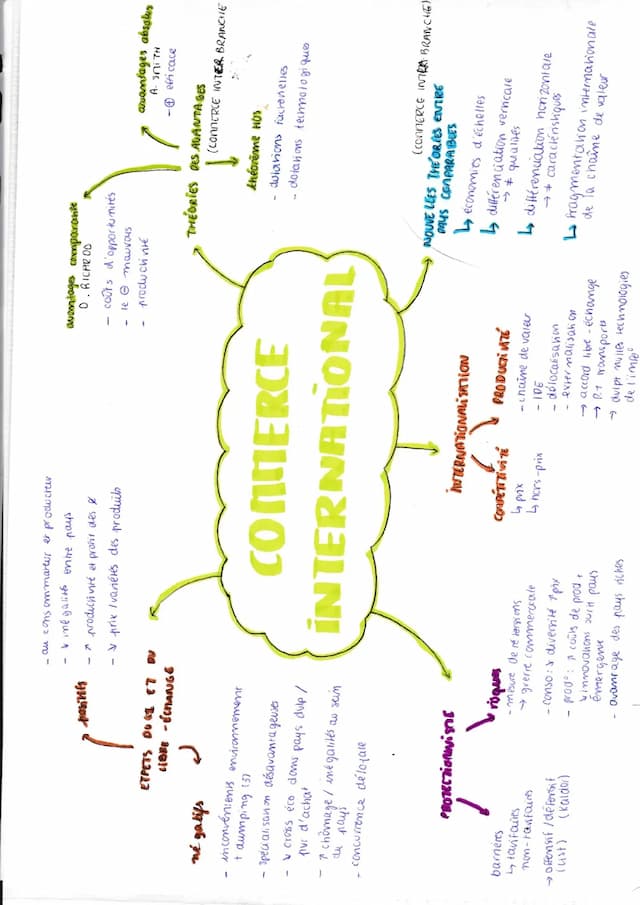 COMMERCE
INTERNATIONAL
THÉORIES DES AVANTAGES
(COMMERCE INTER BRANCHE)
avantages absolus
A. SMITH
- ⊕ efficace
avantages comparatifs
D. RICARDO
- coûts d'opportunités
- le ⊖ mauvais
- productivité
théorème HOS
- dotations factorielles
- dotations technologiques
(COMMERCE INTRA BRANCHE)
NOUVELLES THÉORIES ENTRE
PAYS COMPARABLES
↳ économies d'échelles
↳ différenciation verticale
→ ≠ qualités
↳ différenciation horizontale
→ ≠ caractéristiques
↳ fragmentation internationale
de la chaîne de valeur
INTERNATIONALISATION
PRODUCTIVITÉ
- chaîne de valeur
- IDE
- délocalisation
- externalisation
→ accord libre-échange
→ transports
→ dvlpt nvlles technologies
de l'info°
COMPÉTITIVITÉ
↳ prix
↳ hors-prix
PROTECTIONNISME
risques
- mesure de rétorsions
→ guerre commerciale
- conso: ↘ diversité ↗ prix
- prod°: ↗ coûts de prod,
↘ innovations
émergente
- avantage des pays riches
barrières
↳ tarifaires
non-tarifaires
→ offensif / défensif
(List) (Kaldor)
EFFETS DU CI ET DU
LIBRE-ÉCHANGE
positifs
- au consommateur et producteur
- ↘ inégalités entre pays
- ↗ productivité et profit des
- ↘ prix / variétés des produits
négatifs
- inconvénients environnement
+ dumping (s)
- spécialisation désavantageuse
- ↘ cross éco dans pays dvlp /
pvr d'achat
- ↗ chômage / inégalités au sein
du pays
- concurrence déloyale